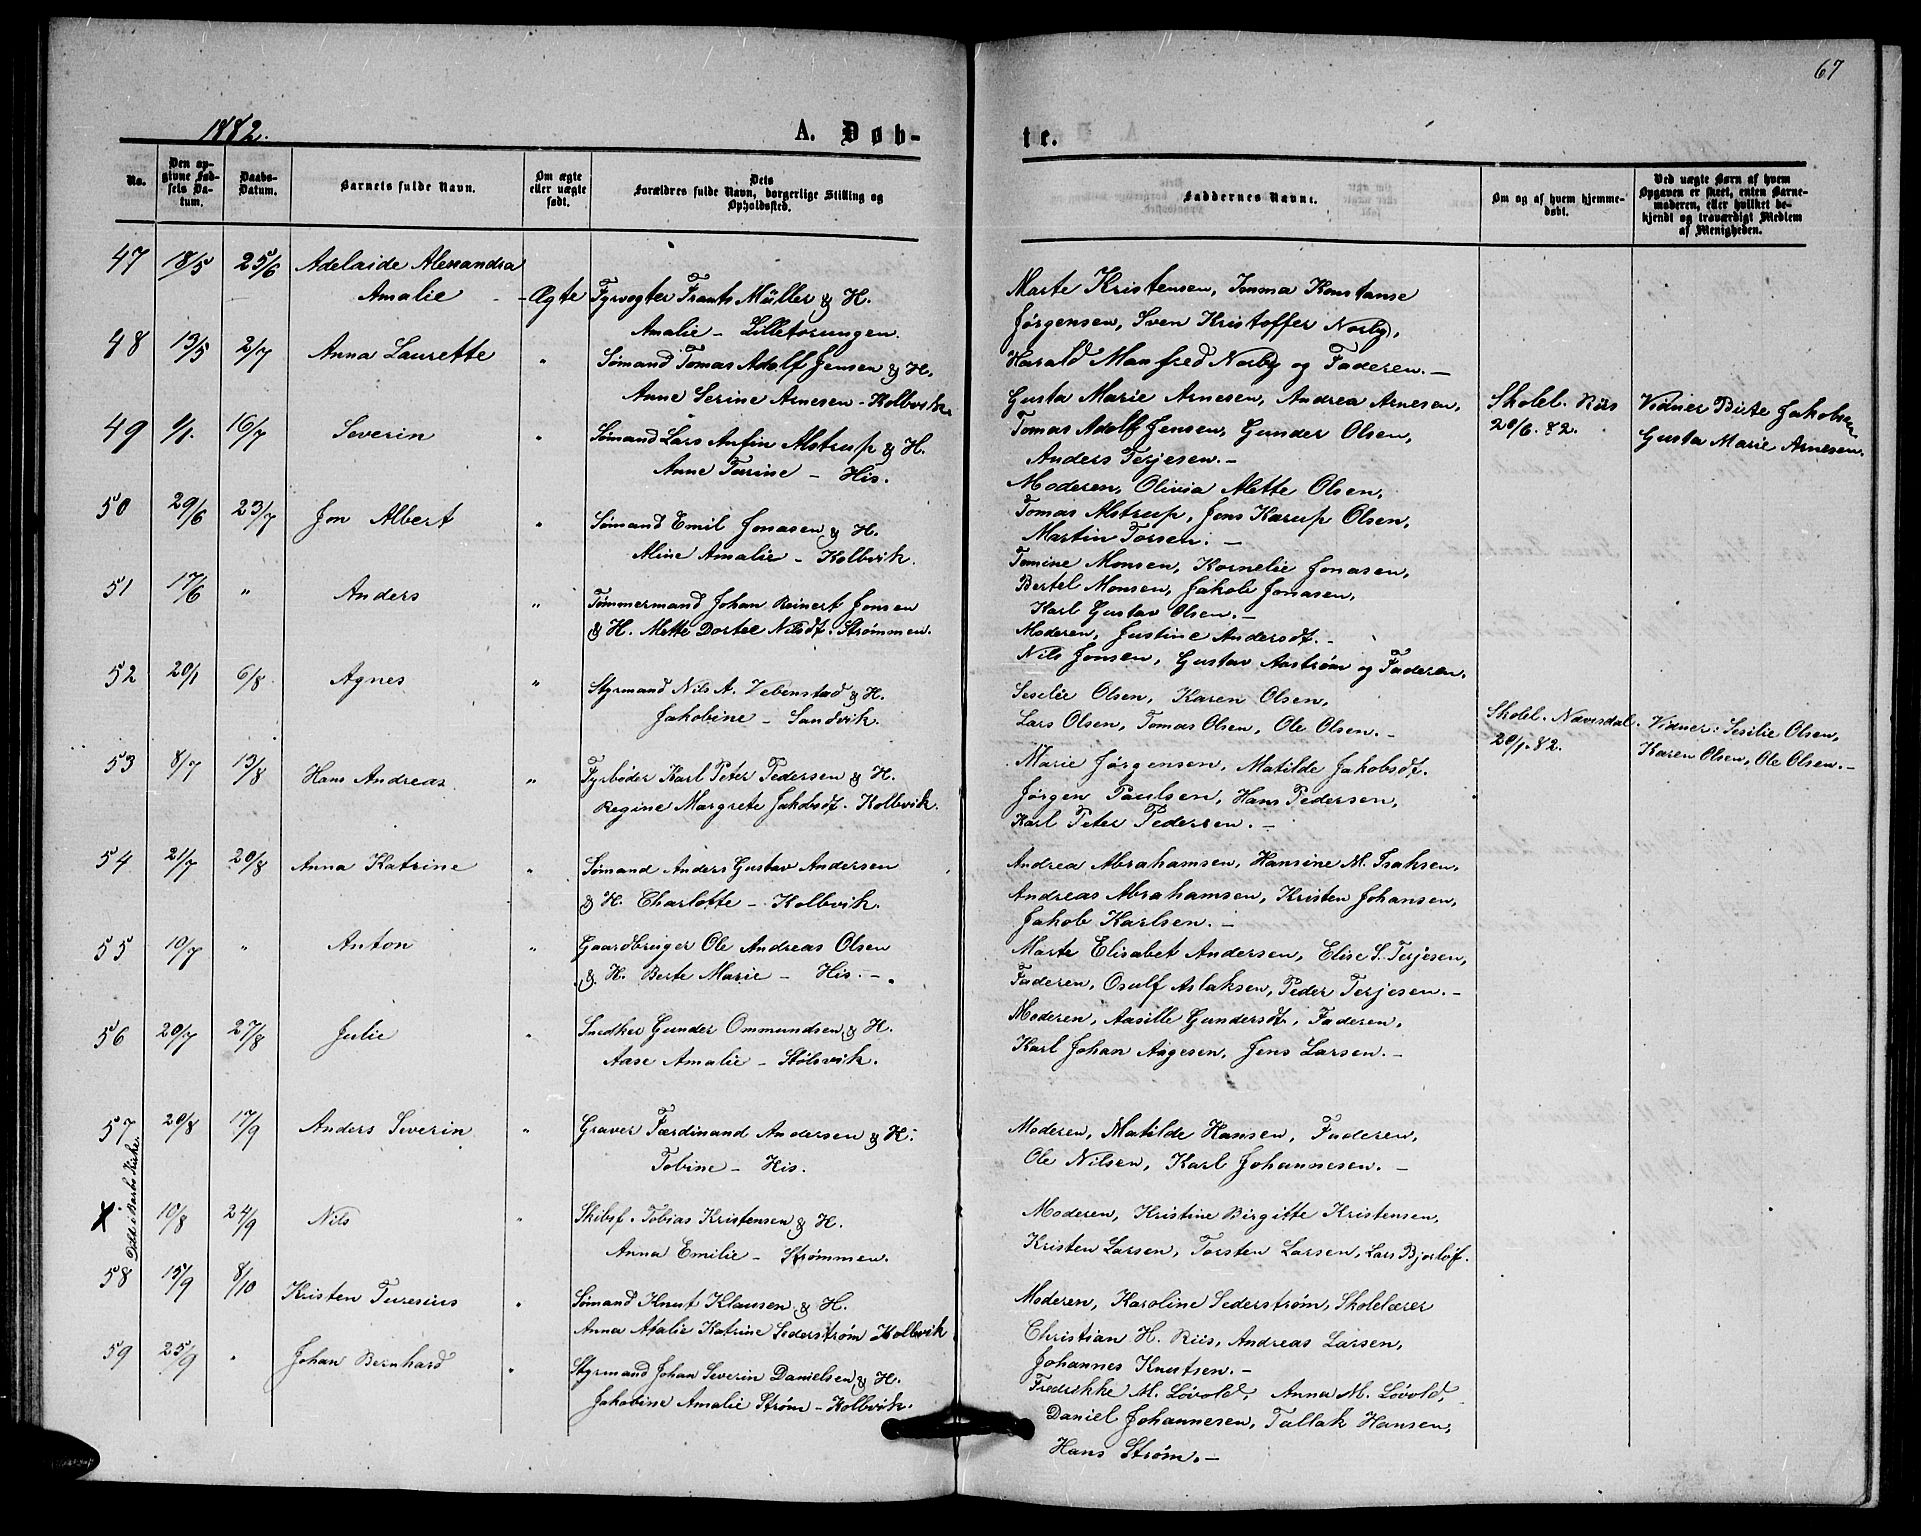 67
1882.
A. Døb-
te.
No.
Den op-
givne Fød-
sels Da-
tum.
Daabs-
Datum.
Barnets fulde Navn.
Om ægte
eller uægte
født.
Dets
Forældres fulde Navn, borgerlige Stilling og
Opholdssted.
Faddernes Navne.
Om og af hvem hjemme-
døbt.
Ved uægte Børn af hvem
Opgaven er skeet, enten Barne-
moderen, eller hvilket be-
kjendt og troværdigt Medlem
af Menigheden.
47 18/5 25/6 Adelaide Alexandra
Amalie - Ægte Fyrvogter Frants Müller & H.
Amalie - Lilletorungen.
Marte Kristensen, Emma Konstanse
Jørgensen, Sven Kristoffer Norby,
Harald Manfred Norby og Faderen. -
48 13/5 2/7 Anna Laurette " Sømand Tomas Adolf Jensen & H.
Anne Serine Arnesen - Kolbvik.
Gusta Marie Arnesen, Andrea Arnesen,
Tomas Adolf Jensen, Gunder Olsen,
Anders Terjesen. -
Skolel. Riis
20/6. 82.
Vidner Birte Jakobsen
Gusta Marie Arnesen.
49 9/1. 16/7 Severin " Sømand Lars Anfin Alstrup & H.
Anne Tarine - His.
Moderen, Olivia Alette Olsen,
Tomas Alstrup, Jens Karup Olsen,
Martin Torsen. -
50 29/6 23/7 Jon Albert " Sømand Emil Jonasen & H.
Aline Amalie - Kolbvik.
Tomine Monsen, Kornelie Jonasen,
Bertel Monsen, Jakob Jonasen,
Karl Gustav Olsen. -
51 17/6 " Anders " Tømmermand Johan Reinert Jonsen
& H. Mette Dortee Nilsdt. Strømmen.
Moderen, Justine Andersdt. -
Nils Jonsen, Gustav Aastrøm og Faderen.
52 20/1 6/8 Agnes " Styrmand Nils A. Vebenstad & H.
Jakobine - Sandvik.
Seselie Olsen, Karen Olsen,
Lars Olsen, Tomas Olsen, Ole Olsen. -
Skolel. Nævesdal
20/1. 82.
Vidner: Sesilie Olsen,
Karen Olsen, Ole Olsen. -
53 8/7 13/8 Hans Andreas. " Fyrbøder Karl Peter Pedersen & H.
Regine Margrete Jakobsdt. Kolbvik.
Marie Jørgensen, Matilde Jakobsdt.
Jørgen Paulsen, Hans Pedersen,
Karl Peter Pedersen. -
54 21/7 20/8 Anna Katrine " Sømand Anders Gustav Andersen
& H. Charlotte - Kolbvik.
Andrea Abrahamsen, Hansine M. Isaksen,
Andreas Abrahamsen, Kristen Johansen,
Jakob Karlsen. -
55 10/7 " Anton " Gaardbruger Ole Andreas Olsen
& H. Berte Marie - His. -
Marte Elisabet Andersen, Elise S. Terjesen,
Faderen, Osulf Aslaksen, Peder Terjesen. -
56 20/7 27/8 Julie " Snedker Gunder Ommundsen & H.
Aase Amalie - Stølsvik.
Moderen, Aasille Gundersdt., Faderen,
Karl Johan Aagesen, Jens Larsen. -
57 20/8 17/9 Anders Severin " Graver Færdinand Andersen & H.
Tobine - His.
Moderen, Matilde Hansen, Faderen,
Ole Nilsen, Karl Johannesen. -
Døbt i Barbo Kirke.
X 10/8 24/9 Nils " Skibsf. Tobias Kristensen & H.
Anna Emilie - Strømmen.
Moderen, Kristine Birgitte Kristensen,
Kristen Larsen, Torsten Larsen, Lars Bjorløf.
58 15/9 8/10 Kristen Turesius " Sømand Knut Klausen & H.
Anna Atalie Katrine Sederstrøm Kolbvik
Moderen, Karoline Sederstrøm, Skolelærer
Christian H. Riis, Andreas Larsen,
Johannes Knutsen. -
59 25/9 " Johan Bernhard " Styrmand Johan Severin Danielsen & H.
Jakobine Amalie Strøm - Kolbvik.
Fredrikke M. Løvold, Anna M. Løvold,
Daniel Johannesen, Tallak Hansen,
Hans Strøm. -